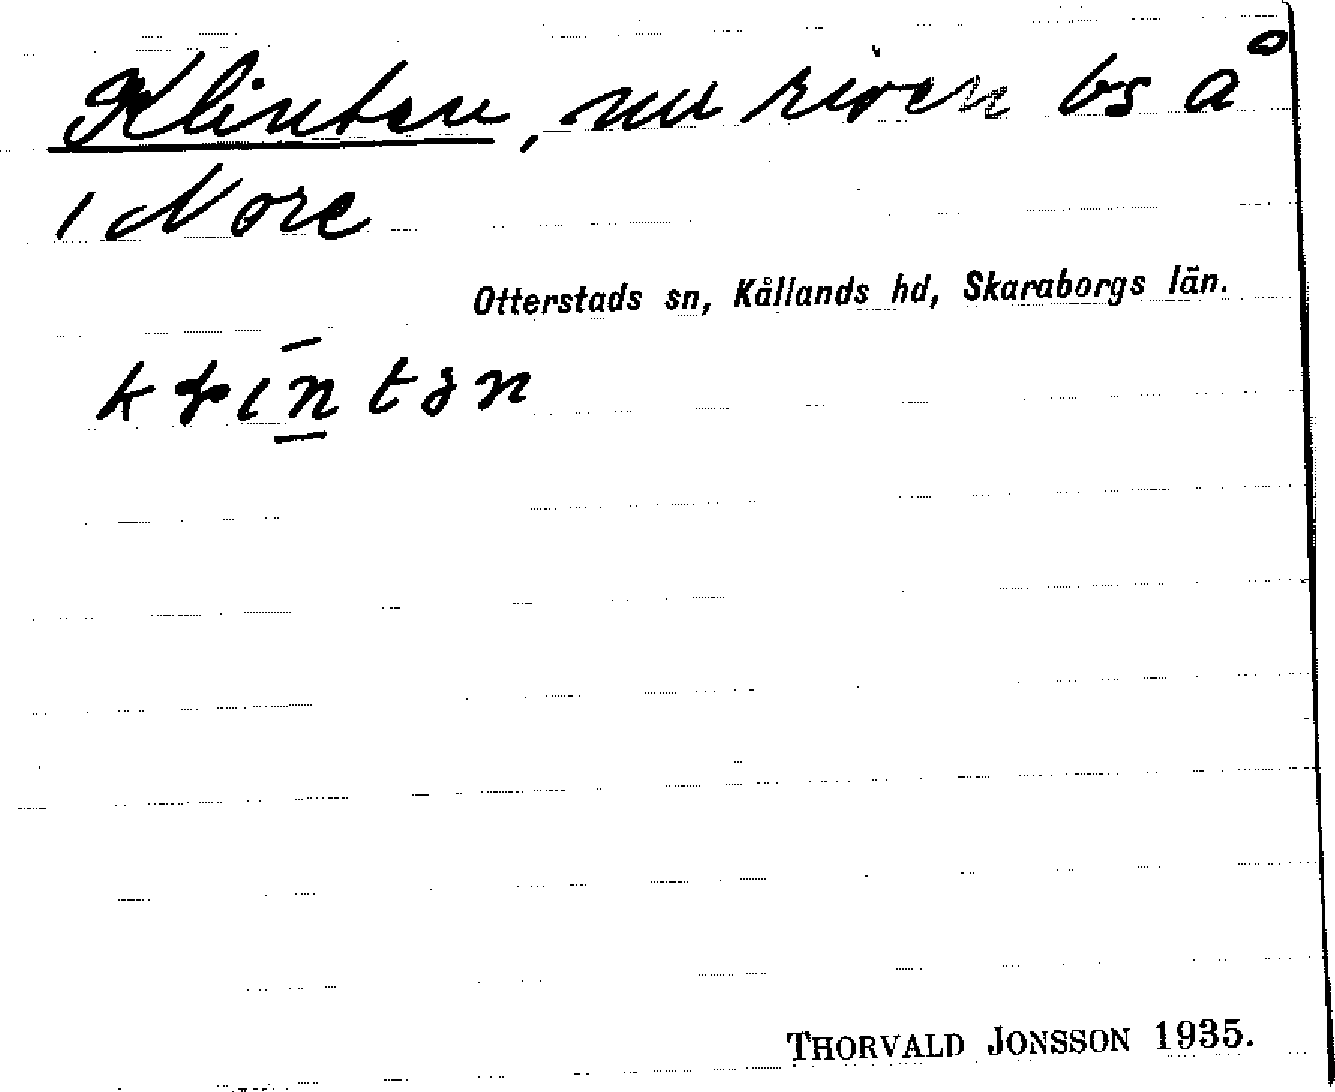 Klinten, nu riven bs å
i Nore
Otterstads sn, Kållands hd, Skaraborgs län.
THORVALD JONSSON 1935.